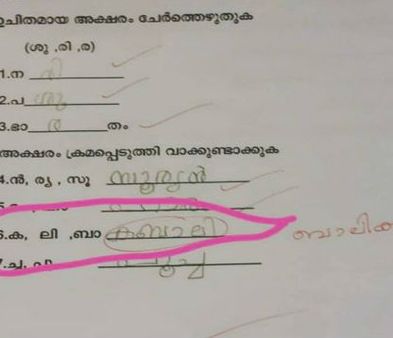 ഉചിതമായ അക്ഷരം ചേർത്തെഴുതുക
(ശു ,രി ,ര)
1.ന രി
2.പ ശു
3.ഭാ ര തം
അക്ഷരം ക്രമപ്പെടുത്തി വാക്കുണ്ടാക്കുക
4.ൻ, ര്യ , സൂ സൂര്യൻ
6.ക, ലി ,ബാ കബാലി ബാലിക
7.ച്ച, പൂച്ച